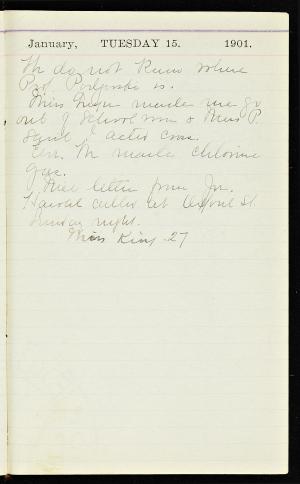 January, TUESDAY 15. 1901.
We do not know where
Prof. is.
Miss made me go
out of School room & Miss P.
said I acted
Chem. We made Chlorine
gas.
Had letter from Jn.
Harold called at St.
Sunday night.
Miss King - 27